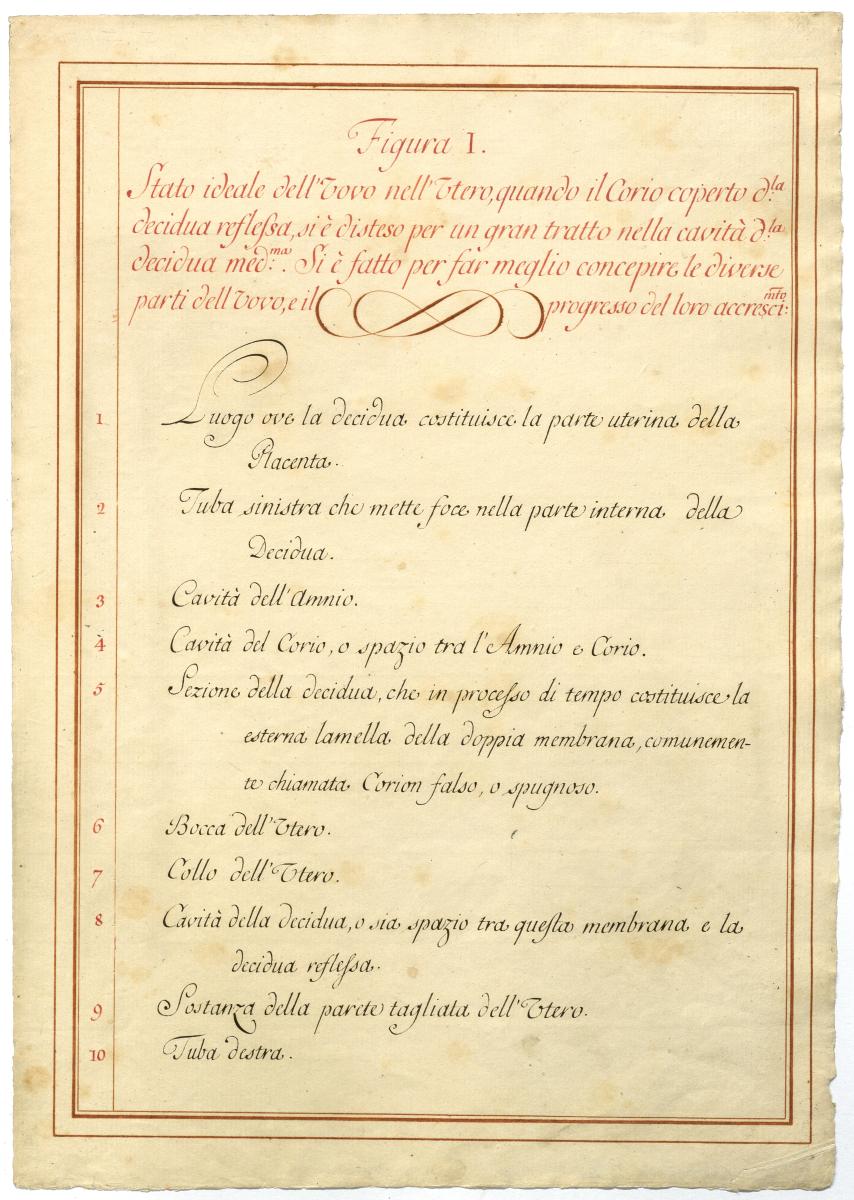 Figura I.
Stato ideale dell'Vovo nell'Vtero, quando il Corio coperto d.la
decidua reflessa, si è disteso per un gran tratto nella cavità d.la
decidua med.ma. Si è fatto per fàr meglio concepire le diverse
parti dell'Vovo, e il progresso del loro accresci:mto
1 Luogo ove la decidua costituisce la parte uterina della
Placenta.
2 Tuba sinistra che mette foce nella parte interna della
Decidua.
3 Cavità dell'Amnio.
4 Cavità del Corio, o spazio tra l'Amnio e Corio.
5 Sezione della decidua, che in processo di tempo costituisce la
esterna lamella della doppia membrana, comunemen-
te chiamata Corion falso, o spugnoso.
6 Bocca dell'Vtero.
7 Collo dell'Vtero.
8 Cavità della decidua, o sia spazio tra questa membrana e la
decidua reflessa.
9 Sostanza della parete tagliata dell'Vtero.
10 Tuba destra.